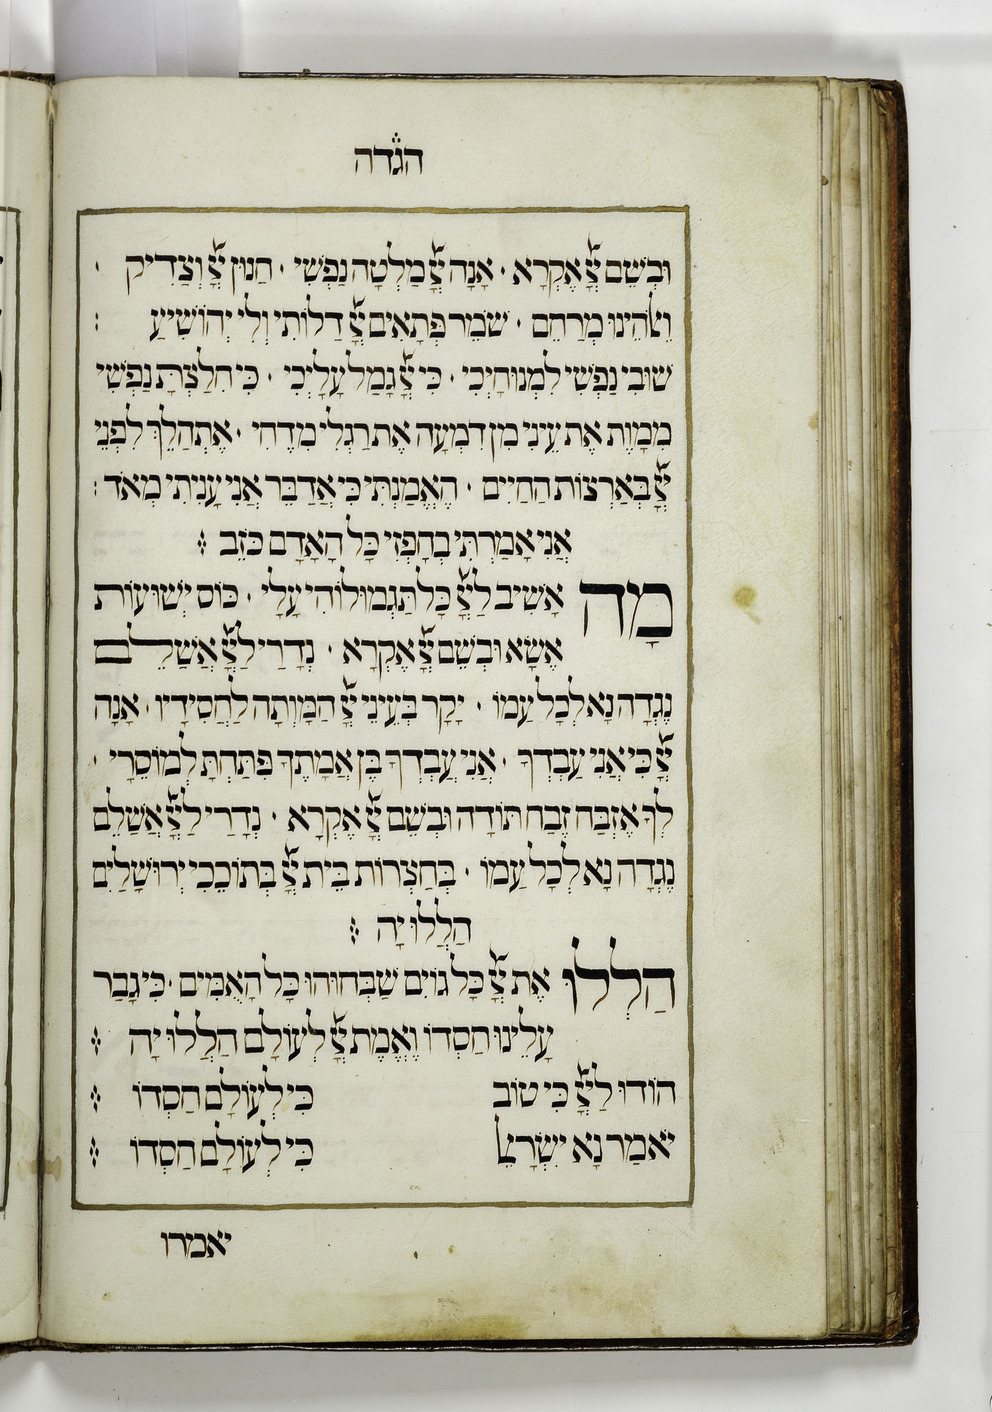 הגדה
וּבְשֵׁם יְיָ אֶקְרָא · אָנָּה יְיָ מַלְּטָה נַפְשִׁי · חַנּוּן יְיָ וְצַדִּיק ·
וֵאלֹהֵינוּ מְרַחֵם · שׁוֹמֵר פְּתָאִים יְיָ דַּלּוֹתִי וְלִי יְהוֹשִׁיעַ :
שׁוּבִי נַפְשִׁי לִמְנוּחָיְכִי · כִּי יְיָ גָּמַל עָלָיְכִי · כִּי חִלַּצְתָּ נַפְשִׁי
מִמָּוֶת אֶת עֵינִי מִן דִּמְעָה אֶת רַגְלִי מִדֶּחִי · אֶתְהַלֵּךְ לִפְנֵי
יְיָ בְּאַרְצוֹת הַחַיִּים · הֶאֱמַנְתִּי כִּי אֲדַבֵּר אֲנִי עָנִיתִי מְאֹד :
אֲנִי אָמַרְתִּי בְחָפְזִי כָּל הָאָדָם כֹּזֵב :
מָה אָשִׁיב לַיְיָ כָּל תַּגְמוּלוֹהִי עָלָי · כּוֹס יְשׁוּעוֹת
אֶשָּׂא וּבְשֵׁם יְיָ אֶקְרָא · נְדָרַי לַיְיָ אֲשַׁלֵּם
נֶגְדָה נָּא לְכָל עַמּוֹ · יָקָר בְּעֵינֵי יְיָ הַמָּוְתָה לַחֲסִידָיו · אָנָּה
יְיָ כִּי אֲנִי עַבְדֶּךָ · אֲנִי עַבְדְּךָ בֶּן אֲמָתֶךָ פִּתַּחְתָּ לְמוֹסֵרָי ·
לְךָ אֶזְבַּח זֶבַח תּוֹדָה וּבְשֵׁם יְיָ אֶקְרָא · נְדָרַי לַיְיָ אֲשַׁלֵּם
נֶגְדָה נָּא לְכָל עַמּוֹ · בְּחַצְרוֹת בֵּית יְיָ בְּתוֹכֵכִי יְרוּשָׁלַיִם
הַלְלוּיָהּ :
הַלְלוּ אֶת יְיָ כָּל גּוֹיִם שַׁבְּחוּהוּ כָּל הָאֻמִּים · כִּי גָבַר
עָלֵינוּ חַסְדּוֹ וֶאֱמֶת יְיָ לְעוֹלָם הַלְלוּיָהּ :
הוֹדוּ לַיְיָ כִּי טוֹב כִּי לְעוֹלָם חַסְדּוֹ :
יֹאמַר נָא יִשְׂרָאֵל כִּי לְעוֹלָם חַסְדּוֹ :
יאמרו